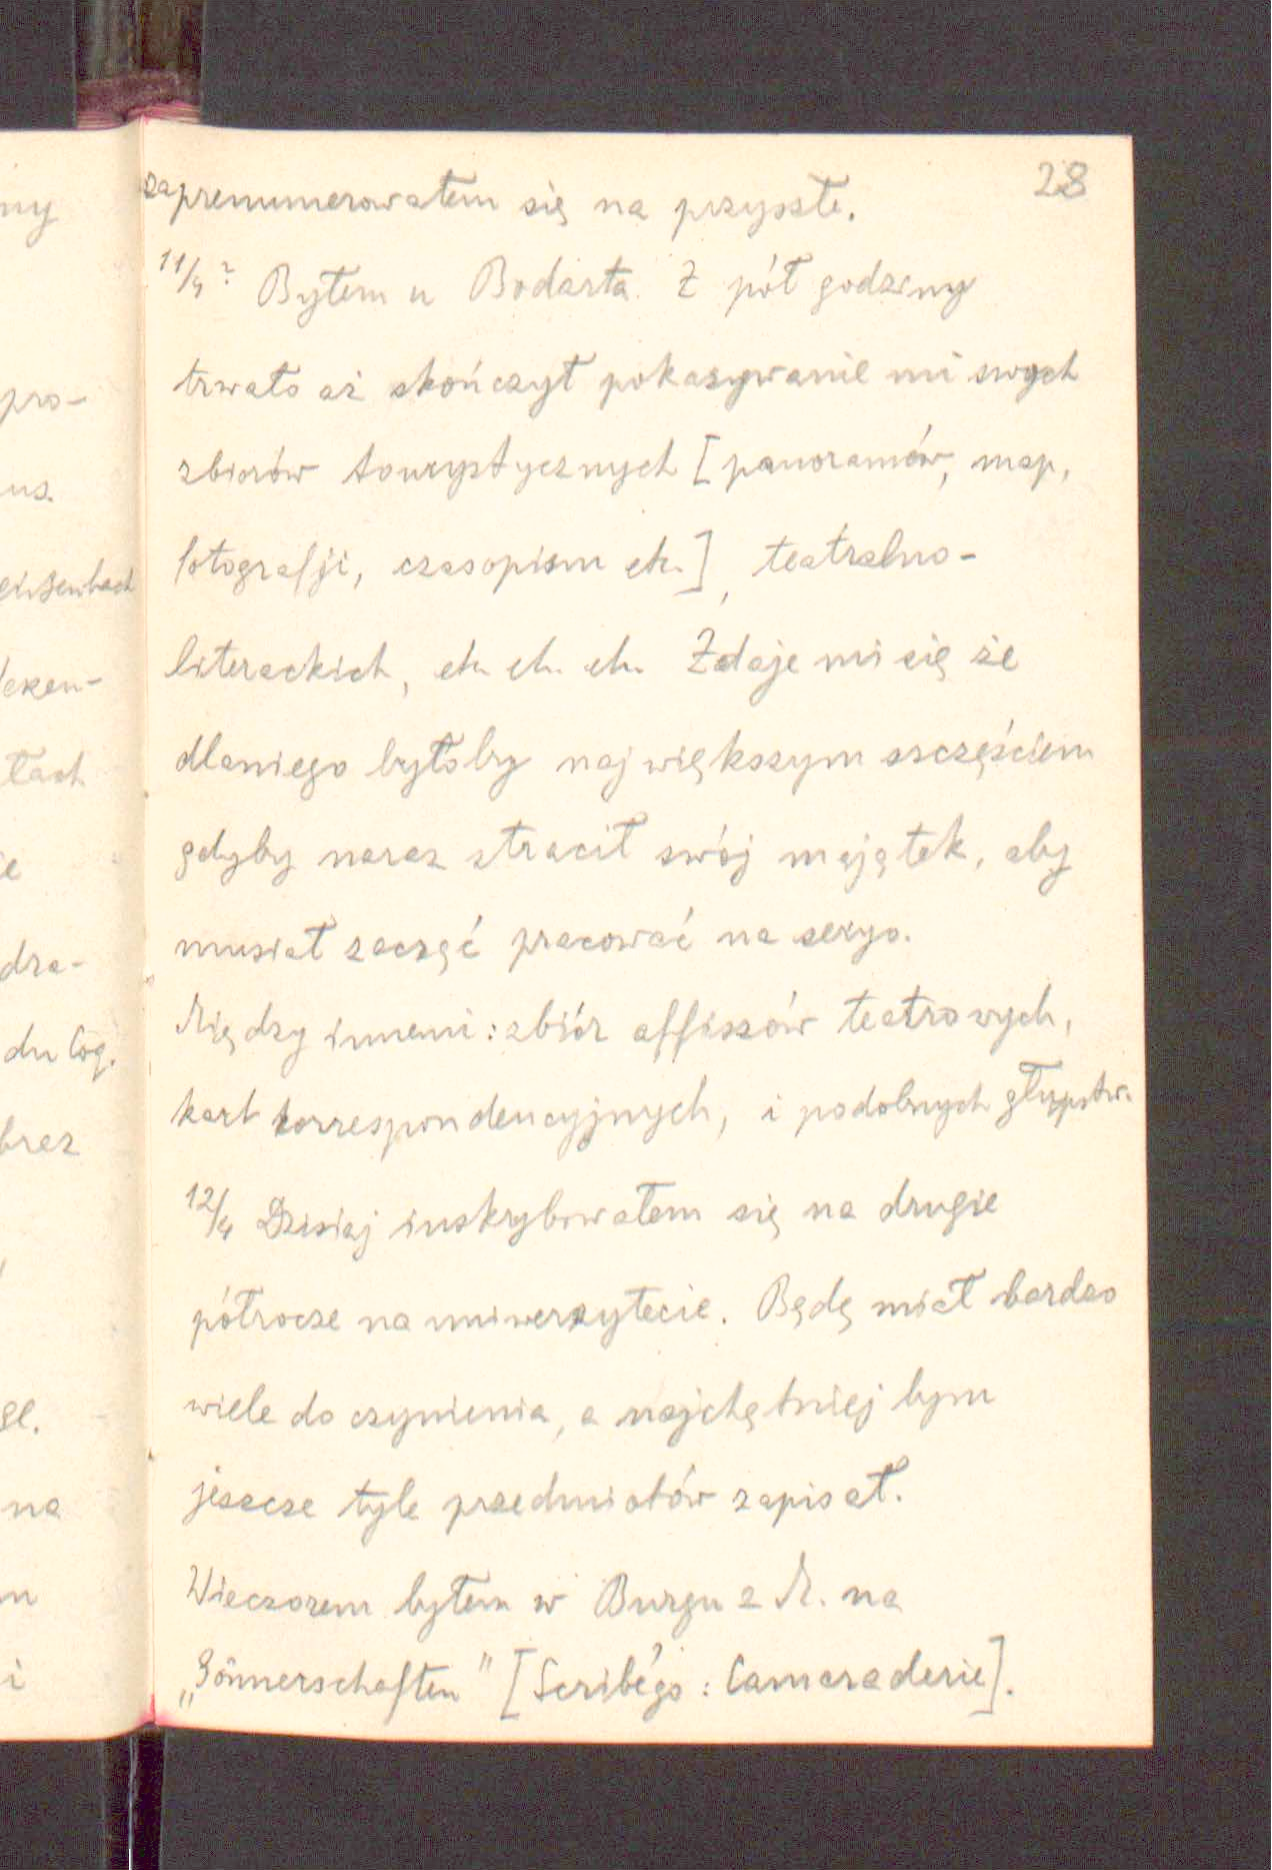 28
zaprenumerowałem się na przyszłe.
11/4? Byłem u Bodarta. Z pół godziny
trwało aż skończył pokazywanie mi swych
zbiorów tourystycznych [panoramów, map,
fotografji, czasopism etc.], teatralno-
literackich, etc. etc. etc. Zdaje mi się że
dlaniego byłoby największym szczęściem
gdyby naraz stracił swój majątek, aby
musiał zacząć pracować na seryo.
Między innemi: zbiór affiszów teatrowych,
kart korrespondencyjnych, i podobnych głupstw.
12/4 Dzisiaj inskrybowałem się na drugie
półrocze na uniwersytecie. Będę miał bardzo
wiele do czynienia, a najchętniej bym
jeszcze tyle przedmiotów zapisał.
Wieczorem byłem w Burgu z M. na
„Gönnerschaften" [Scribe'go: Camaraderie].
ny
pro-
us.
eisenbach
łach
ie
dra-
du Cog.
brez
na
i